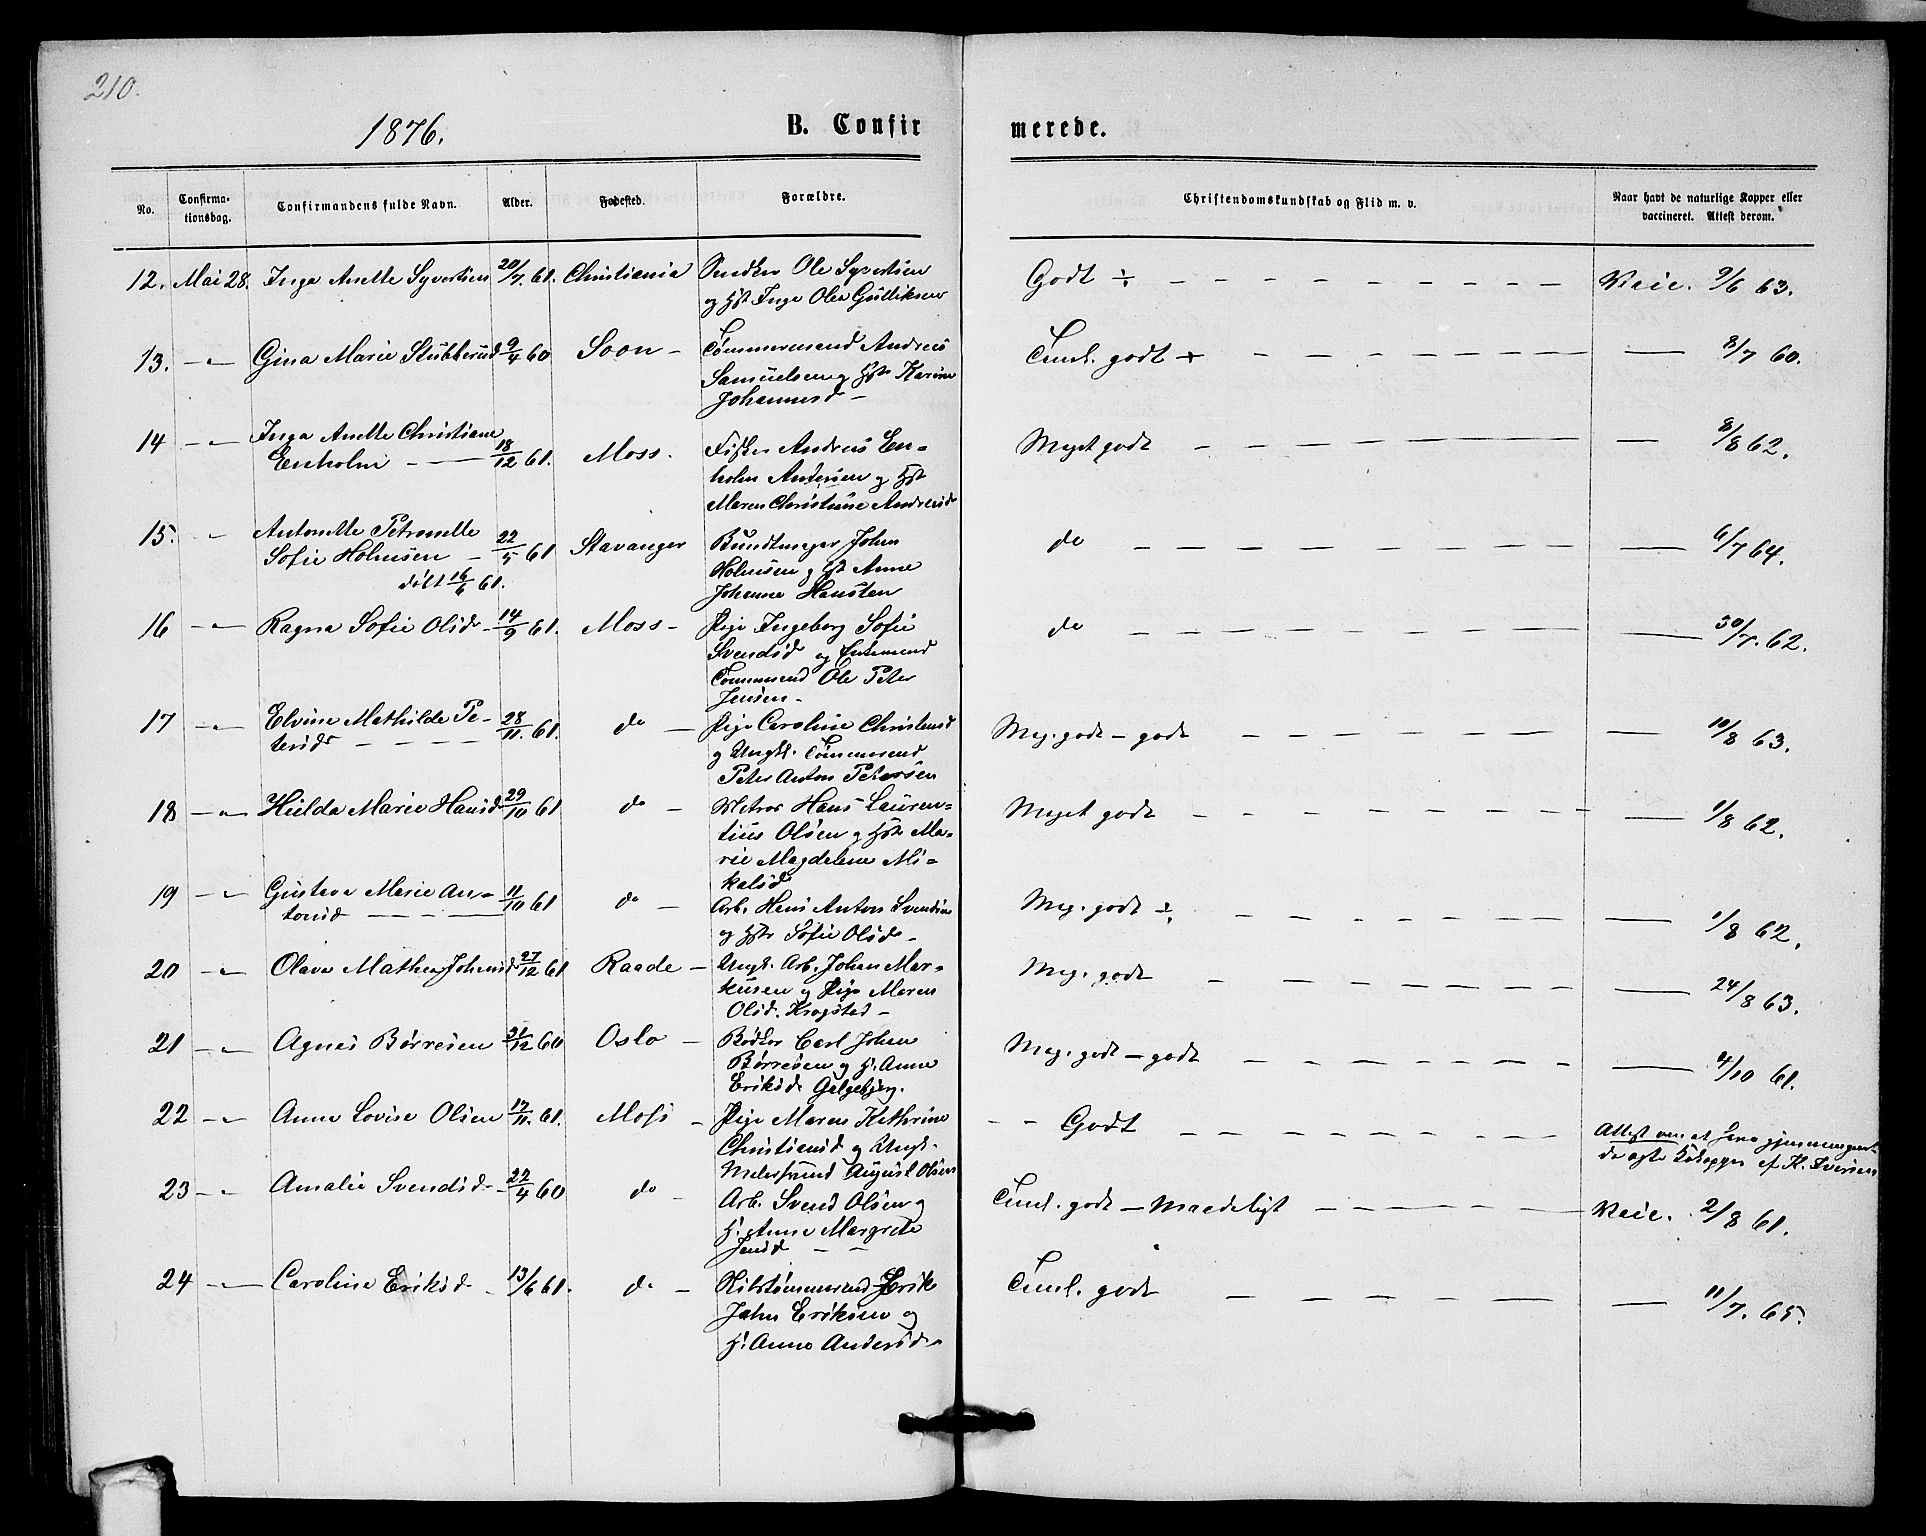 210.
1876.
B. Confir
merede.
No.
Confirma-
tionsdag.
Confirmandens fulde Navn.
Alder.
Fødested.
Forældre.
Christendomskundskab og Flid m. v.
Naar havt de naturlige Kopper eller
vaccineret. Attest derom.
12. Mai 28. Inga Anette Syvertsen 20/7. 61. Christiania
Ole Syvertsen
og Hst Inga Olea Gulliksen
Godt ÷
Veie. 9/6 63.
13. -"- Gina Marie Stubberud 9/4 60 Soon -
Tømmermand Andreas
Samuelsen og Hst Karine
Johannesd -
Teml. godt +
8/7 60.
14 -"- Inga Anette Christiane
Enholm - 18/12 61. Moss.
Fisker Andreas En-
holm Andersen og Hst
Maren Christiane Andreasd
Meget godt
8/8 62.
15. " Antonette Petronelle
Sofie Holmsen - 22/5 61 Stavanger
døbt 16/6 61.
Bundtmager Johan
Holmsen og Hst Anne
Johanne Hansten
do
6/7 64.
16 -"- Ragna Sofie Olsd - 14/9 61. Moss -
Pige Ingeborg Sofie
Svendsd og Enkemand
Tømmermd Ole Peter
Jensen -
do
30/7. 62.
17 -"- Elvine Mathilde Pe-
tersd - 28/11. 61. do -
Pige Caroline Christensd
og Ungk. Tømmermd
Peter Anton Petersen
Meg. godt - godt
10/8 63.
18 -"- Hulda Marie Hansd 29/10 61 do -
Matros Hans Lauren-
tius Olsen og Hst Ma-
rie Magdalene Mi-
kalsd
Meget godt
1/8 62.
19 -"- Gustava Marie An-
tonsd 11/10 61 do -
Arb. Hans Anton Svendsen
og Hst Sofie Olsd -
Meg. godt ÷
1/8 62.
20 -"- Olava Mathea Johansd 27/12 61 Raade -
Ungk. Arb. Johan Mar-
kusen og Pige Maren
Olsd. Krogsted -
Meg. godt
24/8 63.
21 -"- Agnes Børresen 31/12 60 Oslo -
Bødker Carl Johan
Børresen og H. Anne
Eriksd. Galgebjerg.
Meg. godt - godt
4/10 61.
22 -"- Anne Lovise Olsen 17/11. 61. Moss -
Pige Maren Kathrine
Christiansd og Ungk.
August Olsen
-- Godt
Attest om at have gjennemgaaet
de ægte Kokopper af K. Iversen
23 -"- Amalie Svendsd - 22/4 60 do -
Arb. Svend Olsen og
H. Anne Margrete
Jensd - -
Teml. godt - Maadeligt
Veie. 2/8 61.
24 -"- Caroline Eriksd - 13/6 61. do -
Erik
John Eriksen og
H. Anne Andersd -
Teml. godt
11/7. 65.